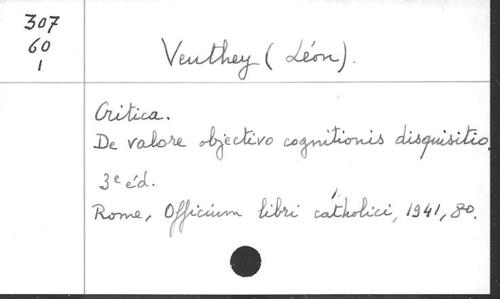 307
60
1
Veuthey (Léon).
Critica.
De valore objectivo cognitionis disquisitio.
3e éd.
Rome, Officium libri catholici, 1941, 8o.